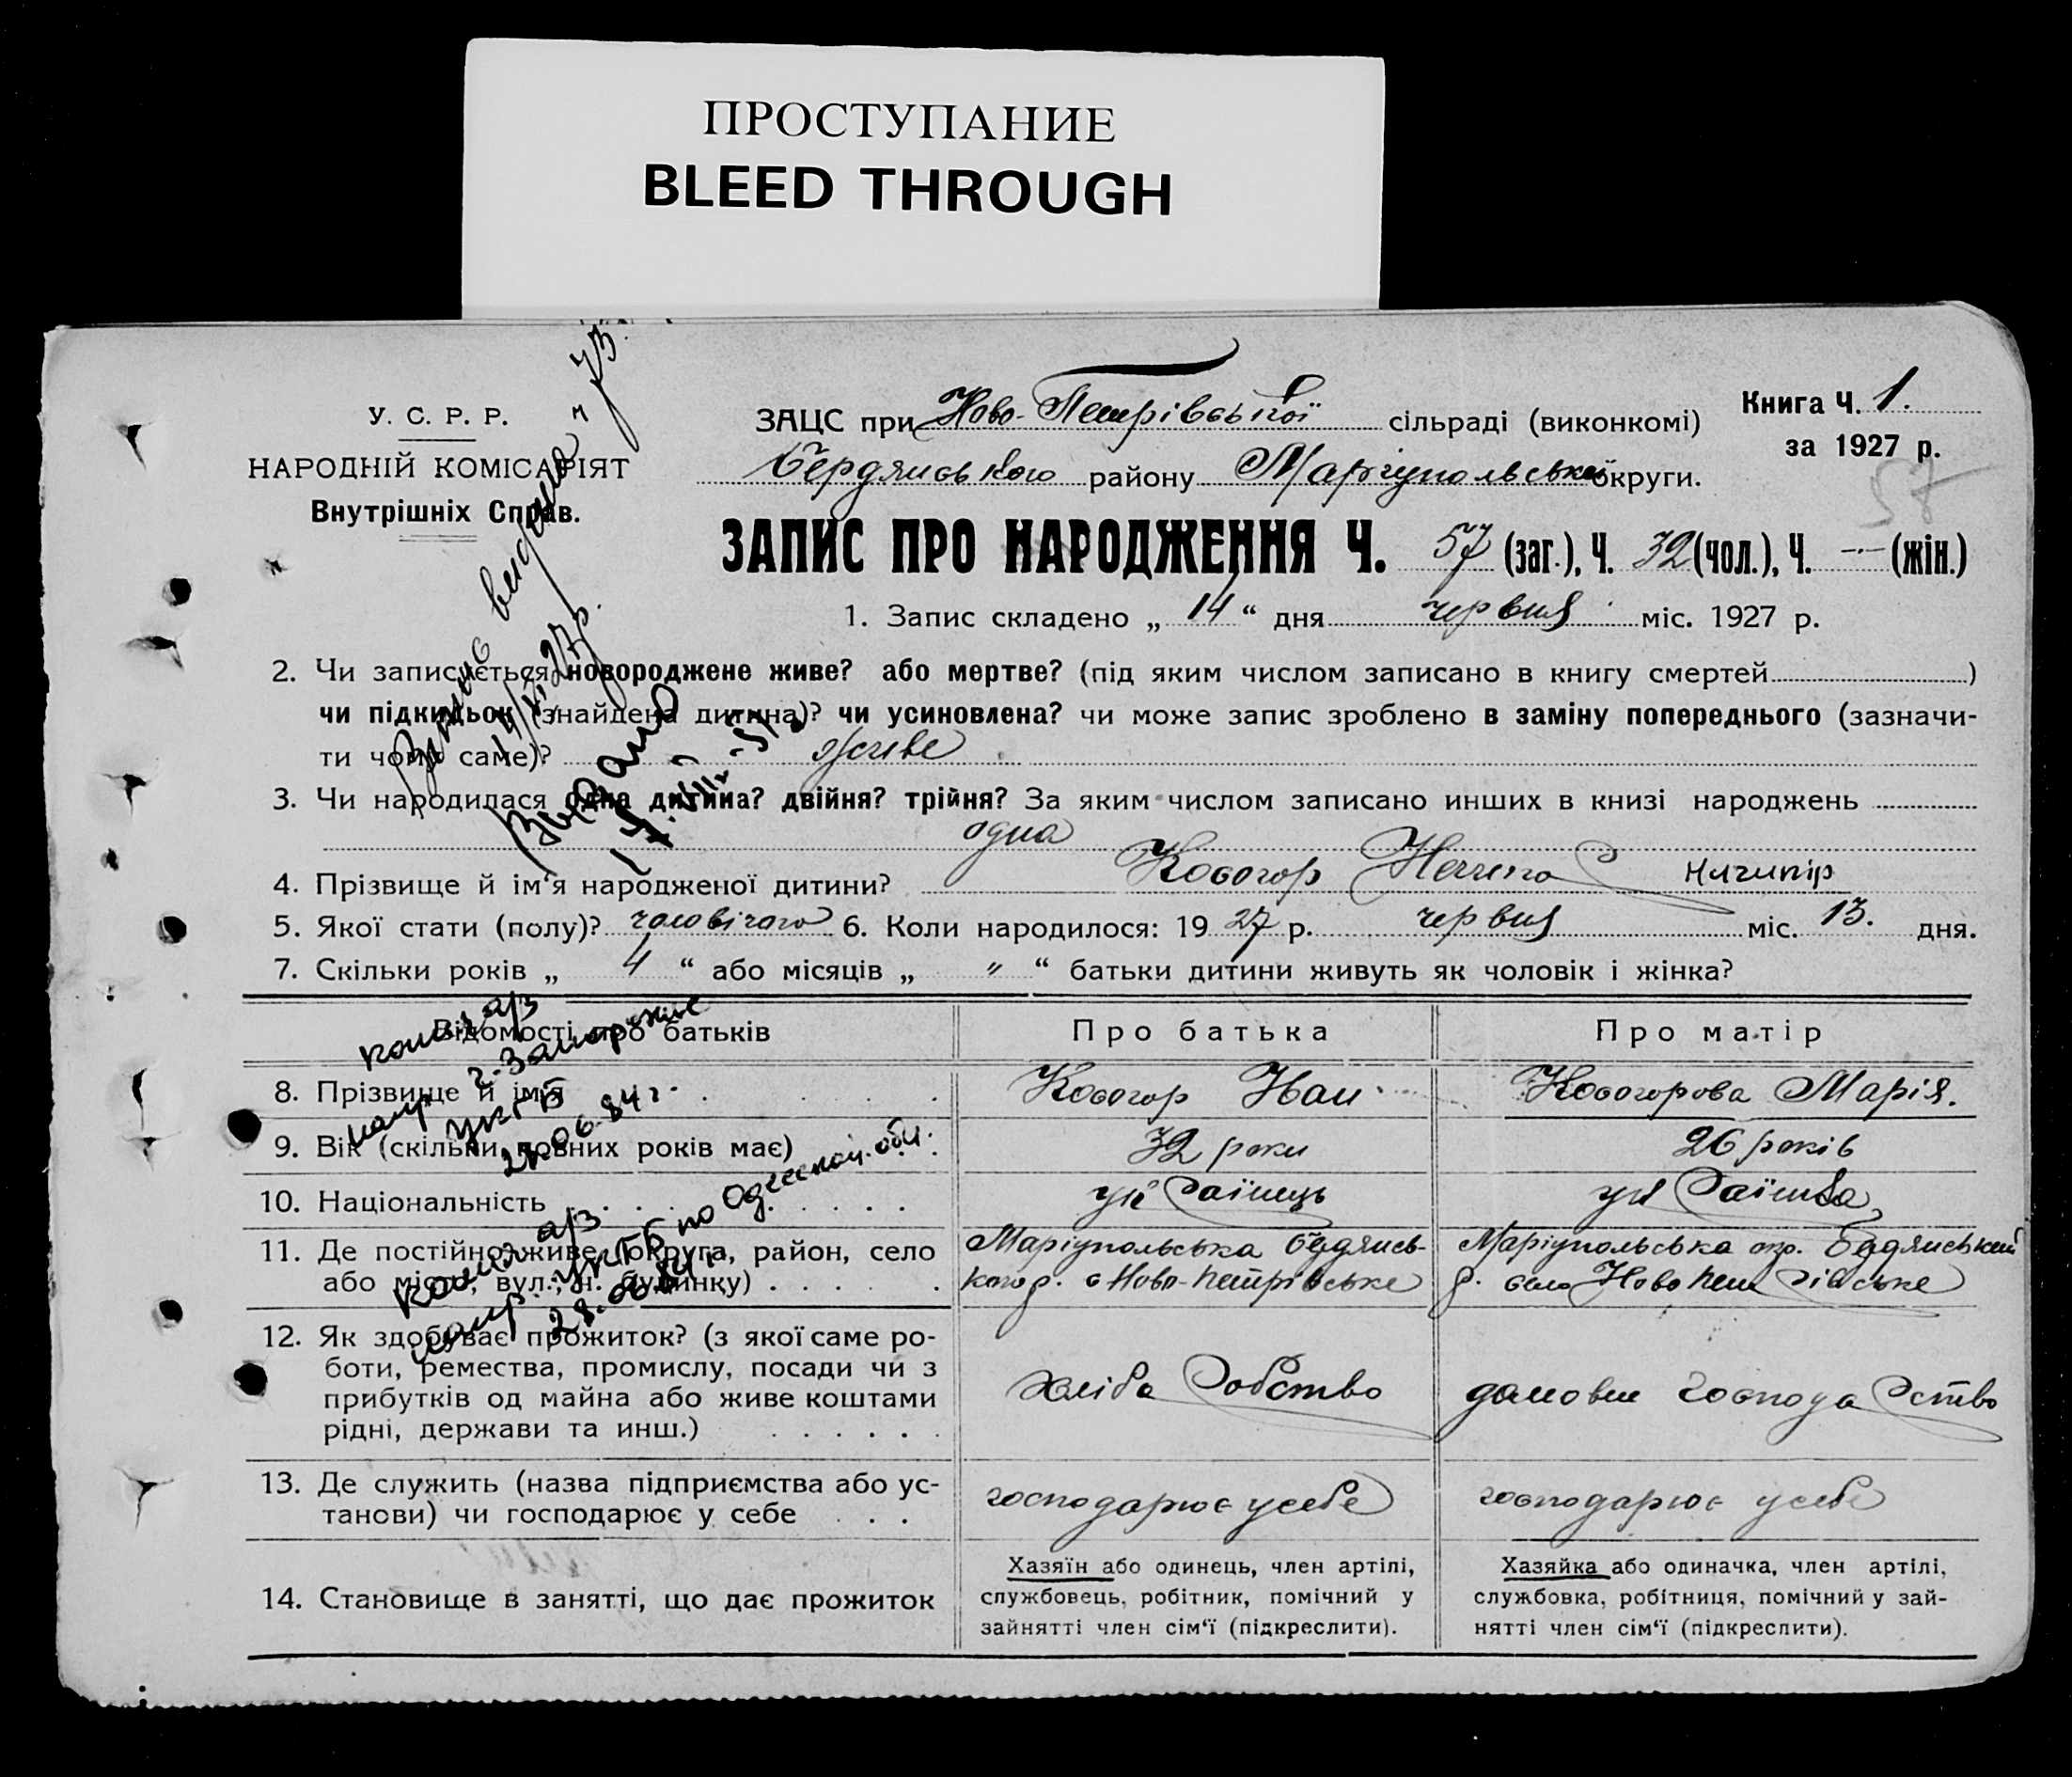 ПРОСТУПАНИЕ
BLEED THROUGH
У. С. Р. Р.
НАРОДНІЙ КОМІСАРІЯТ
Внутрішніх Справ.
ЗАЦС при Ново-Петрівської сільраді (виконкомі)
Бердянського району Маріупольської округи.
Книга Ч. 1.
за 1927 р.
57
ЗАПИС ПРО НАРОДЖЕННЯ Ч. 57 (заг.), Ч. 32 (чол.), Ч. — (жін.)
1. Запис складено „ 14 “ дня червня міс. 1927 р.
2. Чи записується новороджене живе? або мертве? (під яким числом записано в книгу смертей )
чи підкидьок (знайдена дитина)? чи усиновлена? чи може запис зроблено в заміну попереднього (зазначи-
ти чому саме)? живе
3. Чи народилася одна дитина? двійня? трійня? За яким числом записано инших в книзі народжень
одна
4. Прізвище й ім‘я народженої дитини? Косогор Ничипір
5. Якої стати (полу)? чоловічого 6. Коли народилося: 19 27 р. червня міс. 13. дня.
7. Скільки років „ 4 “ або місяців „ " “ батьки дитини живуть як чоловік і жінка?
Відомості про батьків
Про батька
Про матір
8. Прізвище й ім‘я
Косогор Иван
Косогорова Марія.
9. Вік (скільки повних років має)
32 роки
26 років
10. Національність
українець
українка
11. Де постійно живе (округа, район, село
або місто, вул., н. будинку)
Маріупольська Бердянсь-
кого р. с Ново-Петрівське
Маріупольська окр. Бердянський
р. село Ново Петрівське
12. Як здобуває прожиток? (з якої саме ро-
боти, ремества, промислу, посади чи з
прибутків од майна або живе коштами
рідні, держави та инш.)
хлібаробство
домовне господарство
13. Де служить (назва підприємства або ус-
танови) чи господарює у себе
господарює у себе
господарює у себе
14. Становище в занятті, що дає прожиток
Хазяїн або одинець, член артілі,
службовець, робітник, помічний у
зайнятті член сім‘ї (підкреслити).
Хазяйка або одиначка, член артілі,
службовка, робітниця, помічний у зай-
нятті член сім‘ї (підкреслити).
Выпись выдана
Выдано
копия а/з
напр. г. Запорожье
УКГБ
27.06.84 г.
копия а/з
напр. УКГБ по Одесской обл.
28.06.84 г.